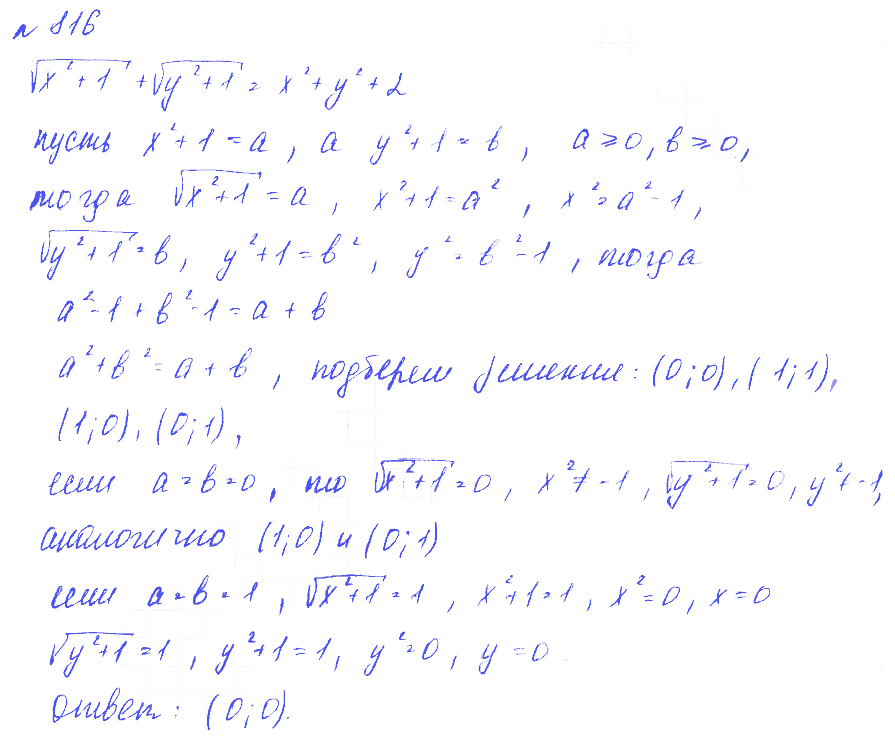 № 816
√(x²+1) + √(y²+1) = x² + y² + 2
пусть x²+1 = a, а y²+1 = b, a ⩾ 0, b ⩾ 0,
тогда √(x²+1) = a, x²+1 = a², x² = a²-1,
√(y²+1) = b, y²+1 = b², y² = b²-1, тогда
a²-1+b²-1 = a + b
a²+b² = a + b, подберем решение: (0;0), (1;1),
(1;0), (0;1),
если a = b = 0, то √(x²+1) = 0, x² ≠ -1, √(y²+1) = 0, y² ≠ -1,
аналогично (1;0) и (0;1)
если a = b = 1, √(x²+1) = 1, x²+1 = 1, x² = 0, x = 0
√(y²+1) = 1, y²+1 = 1, y² = 0, y = 0.
ответ: (0;0).